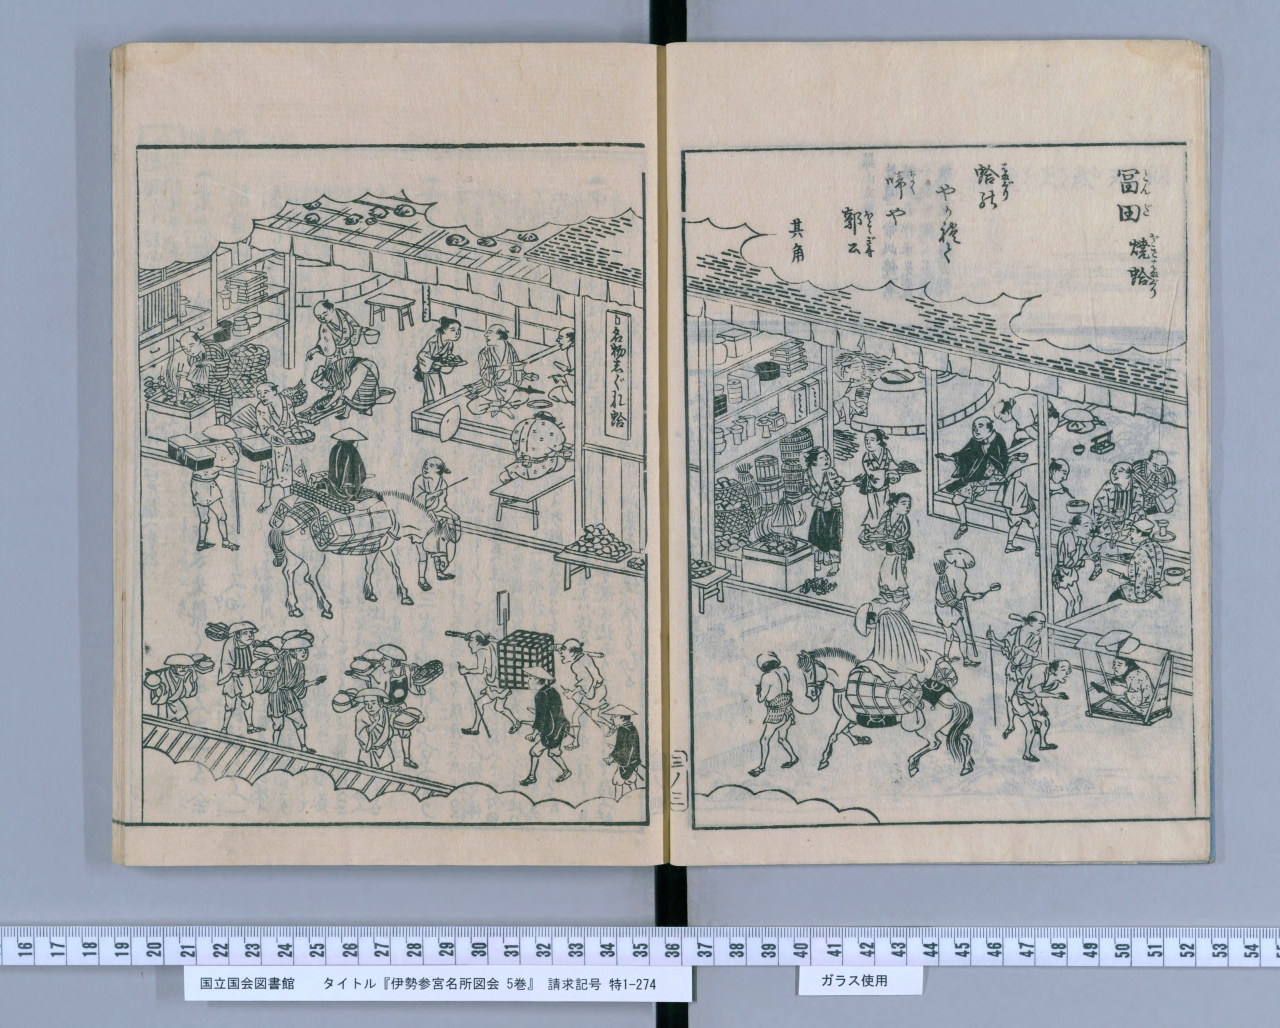 冨田 焼蛤
蛤の
やかれて
啼や
郭公
其角
名物志ぐれ蛤
三ノ三
16 17 18 19 20 21 22 23 24 25 26 27 28 29 30 31 32 33 34 35 36 37 38 39 40 41 42 43 44 45 46 47 48 49 50 51 52 53 54
国立国会図書館 タイトル『伊勢参宮名所図会 5巻』 請求記号 特1-274
ガラス使用